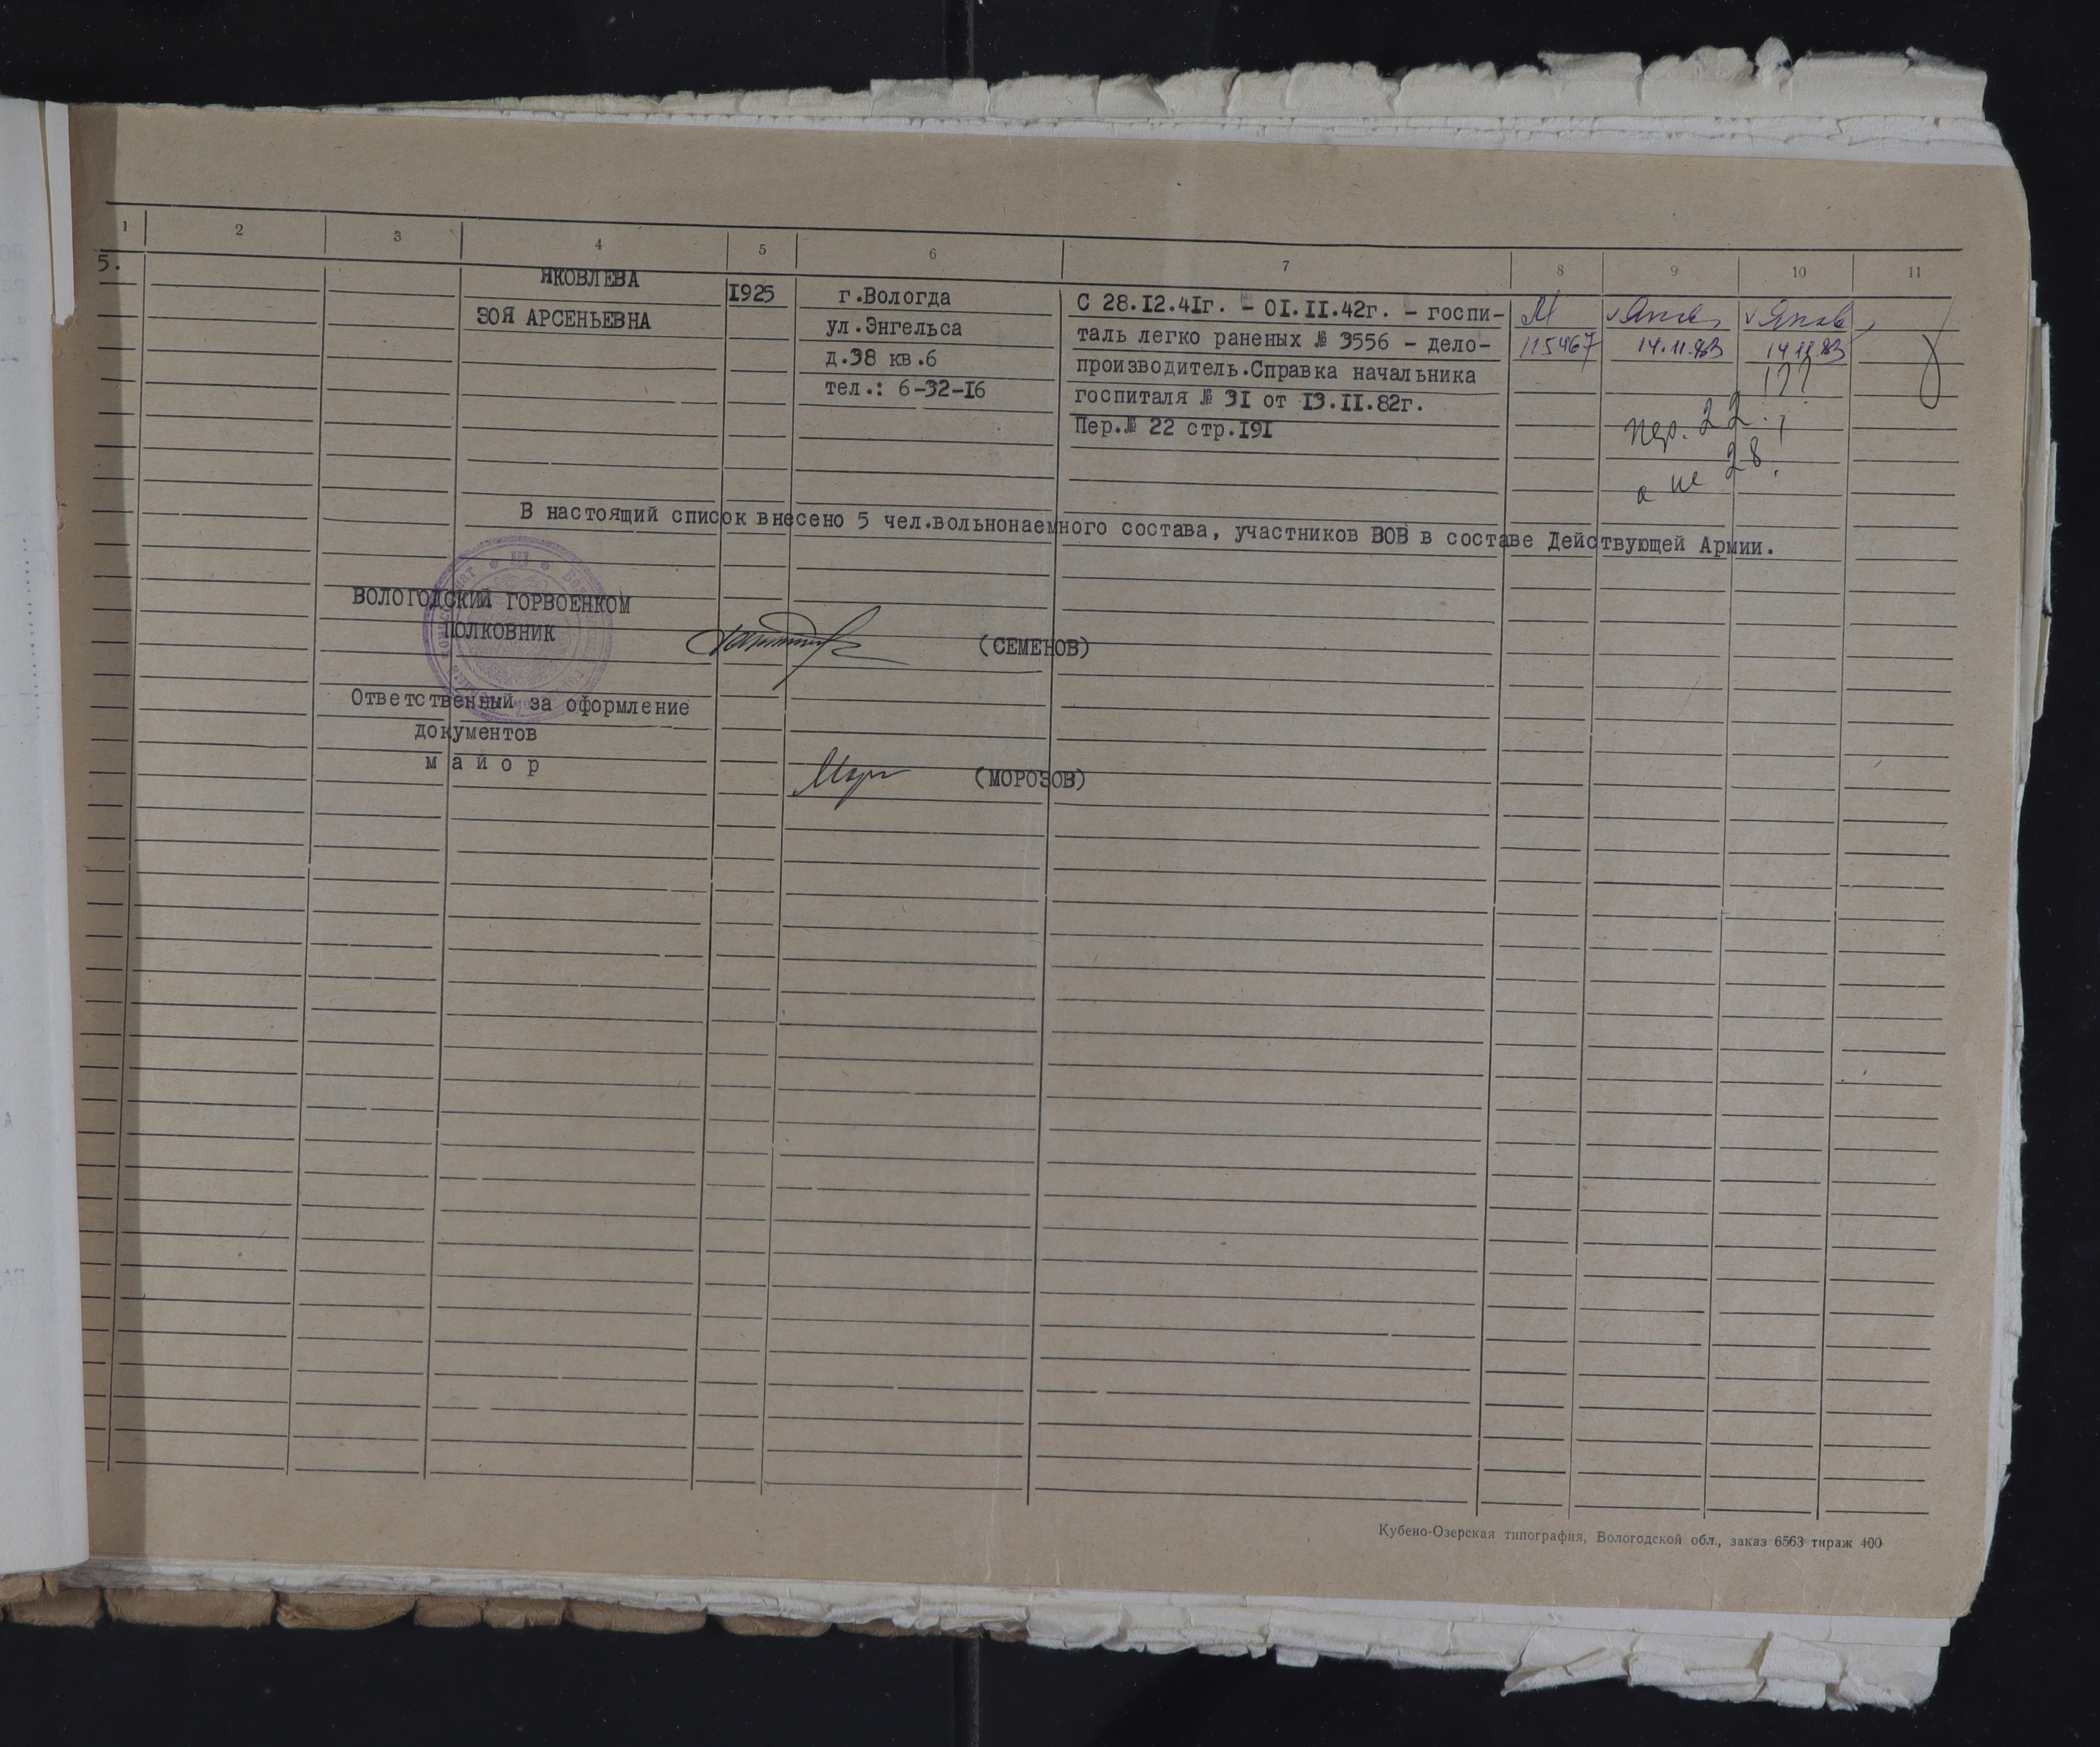 1 2 3 4 5 6 7 8 9 10 11
5. ЯКОВЛЕВА
ЗОЯ АРСЕНЬЕВНА
1925
г.Вологда
ул.Энгельса
д.38 кв.6
тел.: 6-32-16
С 28.12.41г. - 01.11.42г. - госпи-
таль легко раненых № 3556 - дело-
производитель.Справка начальника
госпиталя № 31 от 13.11.82г.
Пер.№ 22 стр.191
М
115467
14.11.83
14.11.83
???
пер. 22
а не 28.
В настоящий список внесено 5 чел.вольнонаемного состава, участников ВОВ в составе Действующей Армии.
ВОЛОГОДСКИЙ ГОРВОЕНКОМ
ПОЛКОВНИК
(СЕМЕНОВ)
Ответственный за оформление
документов
майор
(МОРОЗОВ)
Кубено-Озерская типография, Вологодской обл., заказ 6563 тираж 400